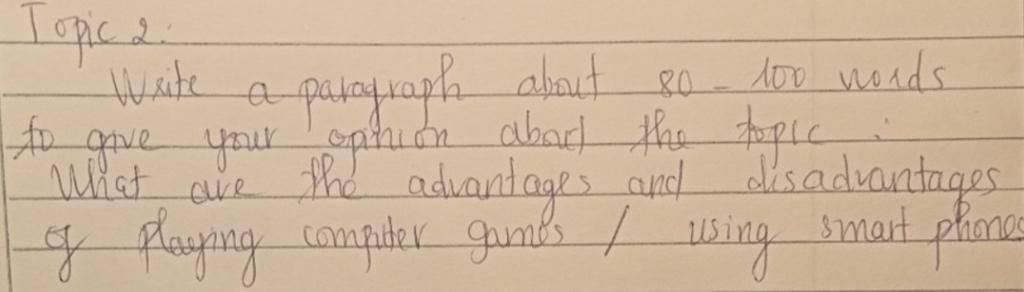 Topic 2:
Write a paragraph about 80 - 100 words
to give your opinion about the topic :
What are the advantages and disadvantages
of playing computer games / using smart phones